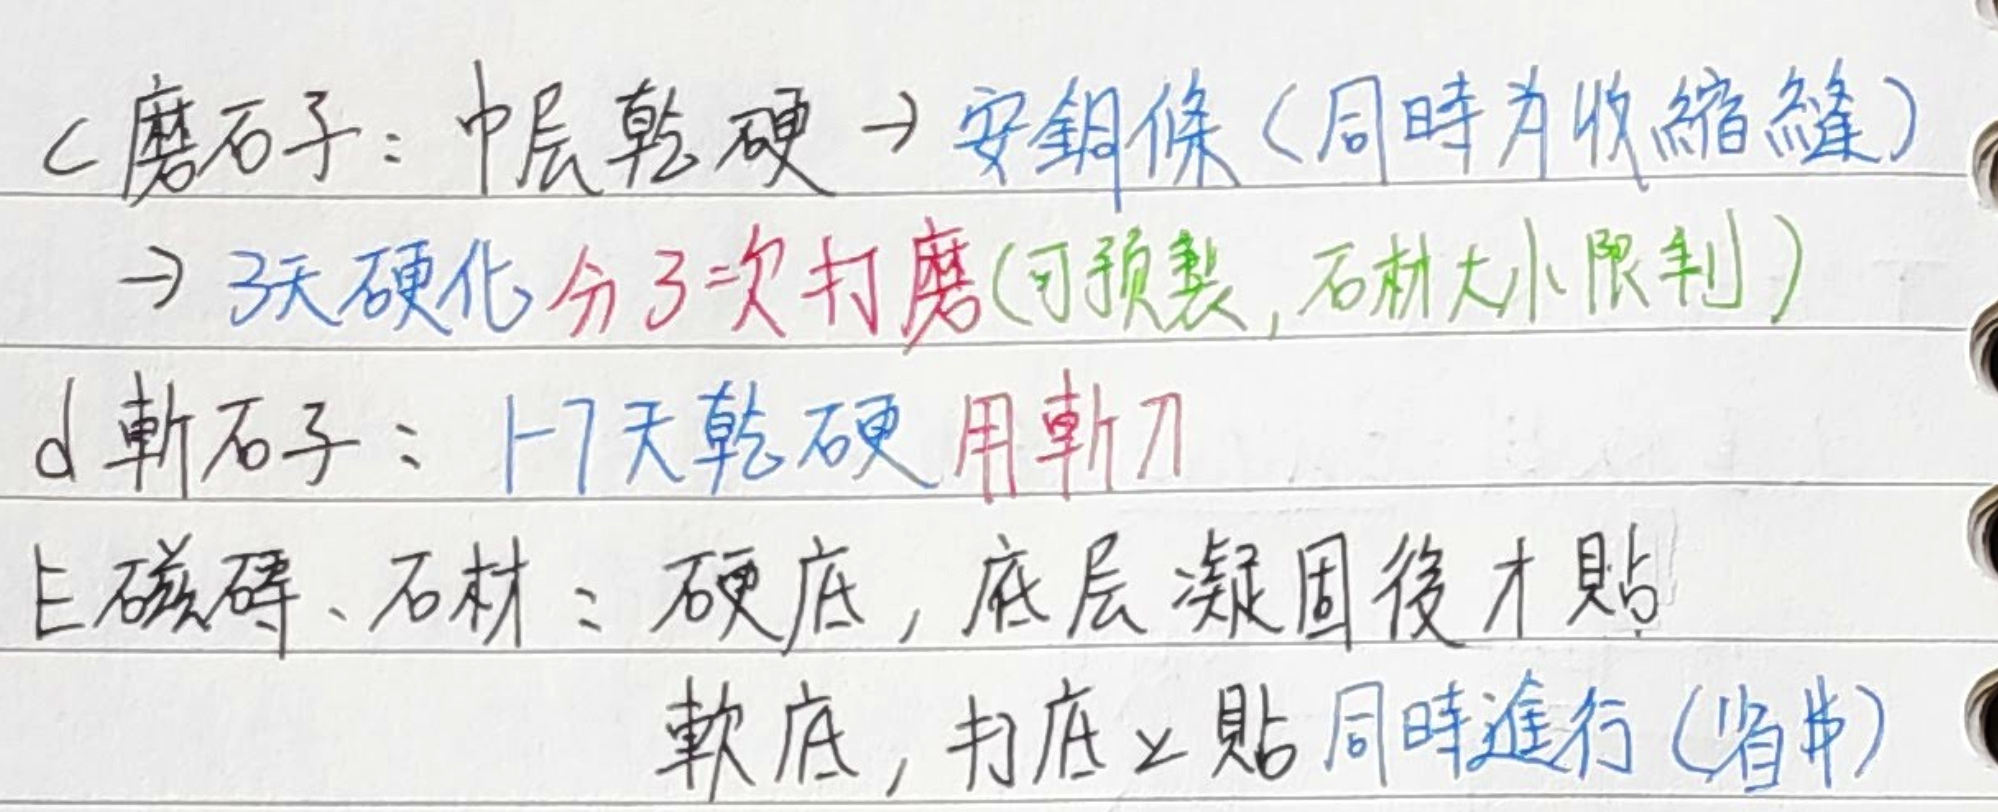 c 磨石子：中层乾硬→安銅條（同時为收縮縫）
→3天硬化 分3次打磨(可預製,石材大小限制）
d 斬石子：1-7天乾硬 用斬刀
E 磁磚、石材：硬底，底层凝固後才貼
軟底，打底 貼 同時進行（省